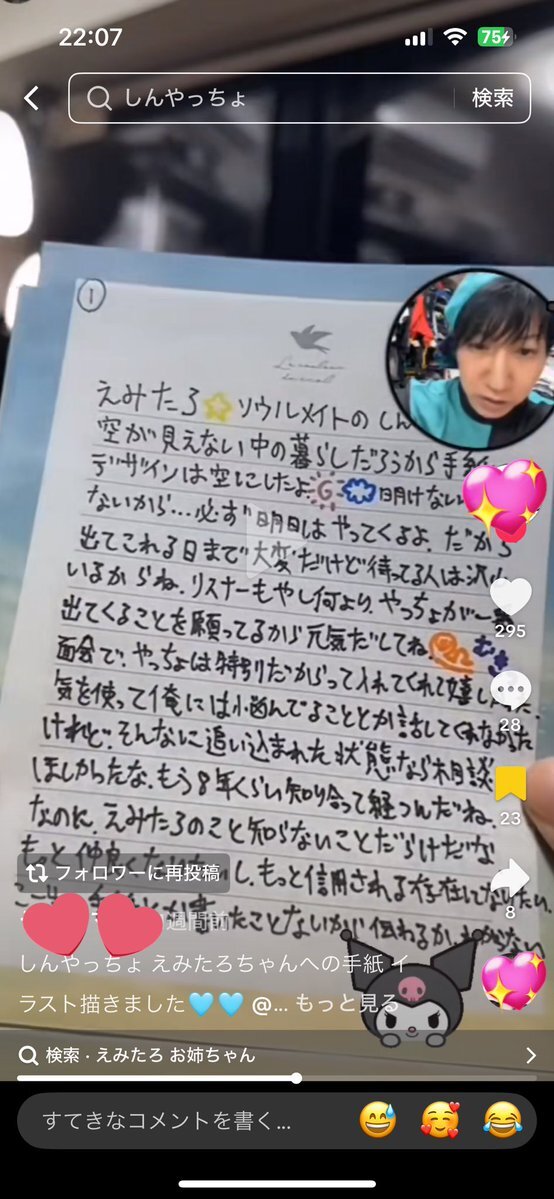 22:07
75
しんやっちょ
検索
①
えみたろ ソウルメイトのしん
空が見えない中の暮らしだろうから手紙
デザインは空にしたよ 明けない
ないから…必ず明日はやってくるよ。だから
出てこれる日まで大変だけど待ってる人は沢山
いるからね。リスナーもやし何より、やっちょが一番
出てくることを願ってるから元気だしてね。
面会で、やっちょは特別だからって入れてくれて嬉しかった
気を使って俺には悩んでることとか話してくれなかった
けれど、そんなに追い込まれた状態なら相談
ほしかったな。もう8年くらい知り合って経つんだね。
なのに、えみたろのこと知らないことだらけだな
もっと仲良くなりたいし、もっと信用される存在になりたい。
書いたことないから伝わるか、わからない
295
28
23
8
フォロワーに再投稿
週間前
しんやっちょ えみたろちゃんへの手紙 イ
ラスト描きました🩵🩵 @... もっと見る
検索 · えみたろ お姉ちゃん
すてきなコメントを書く...